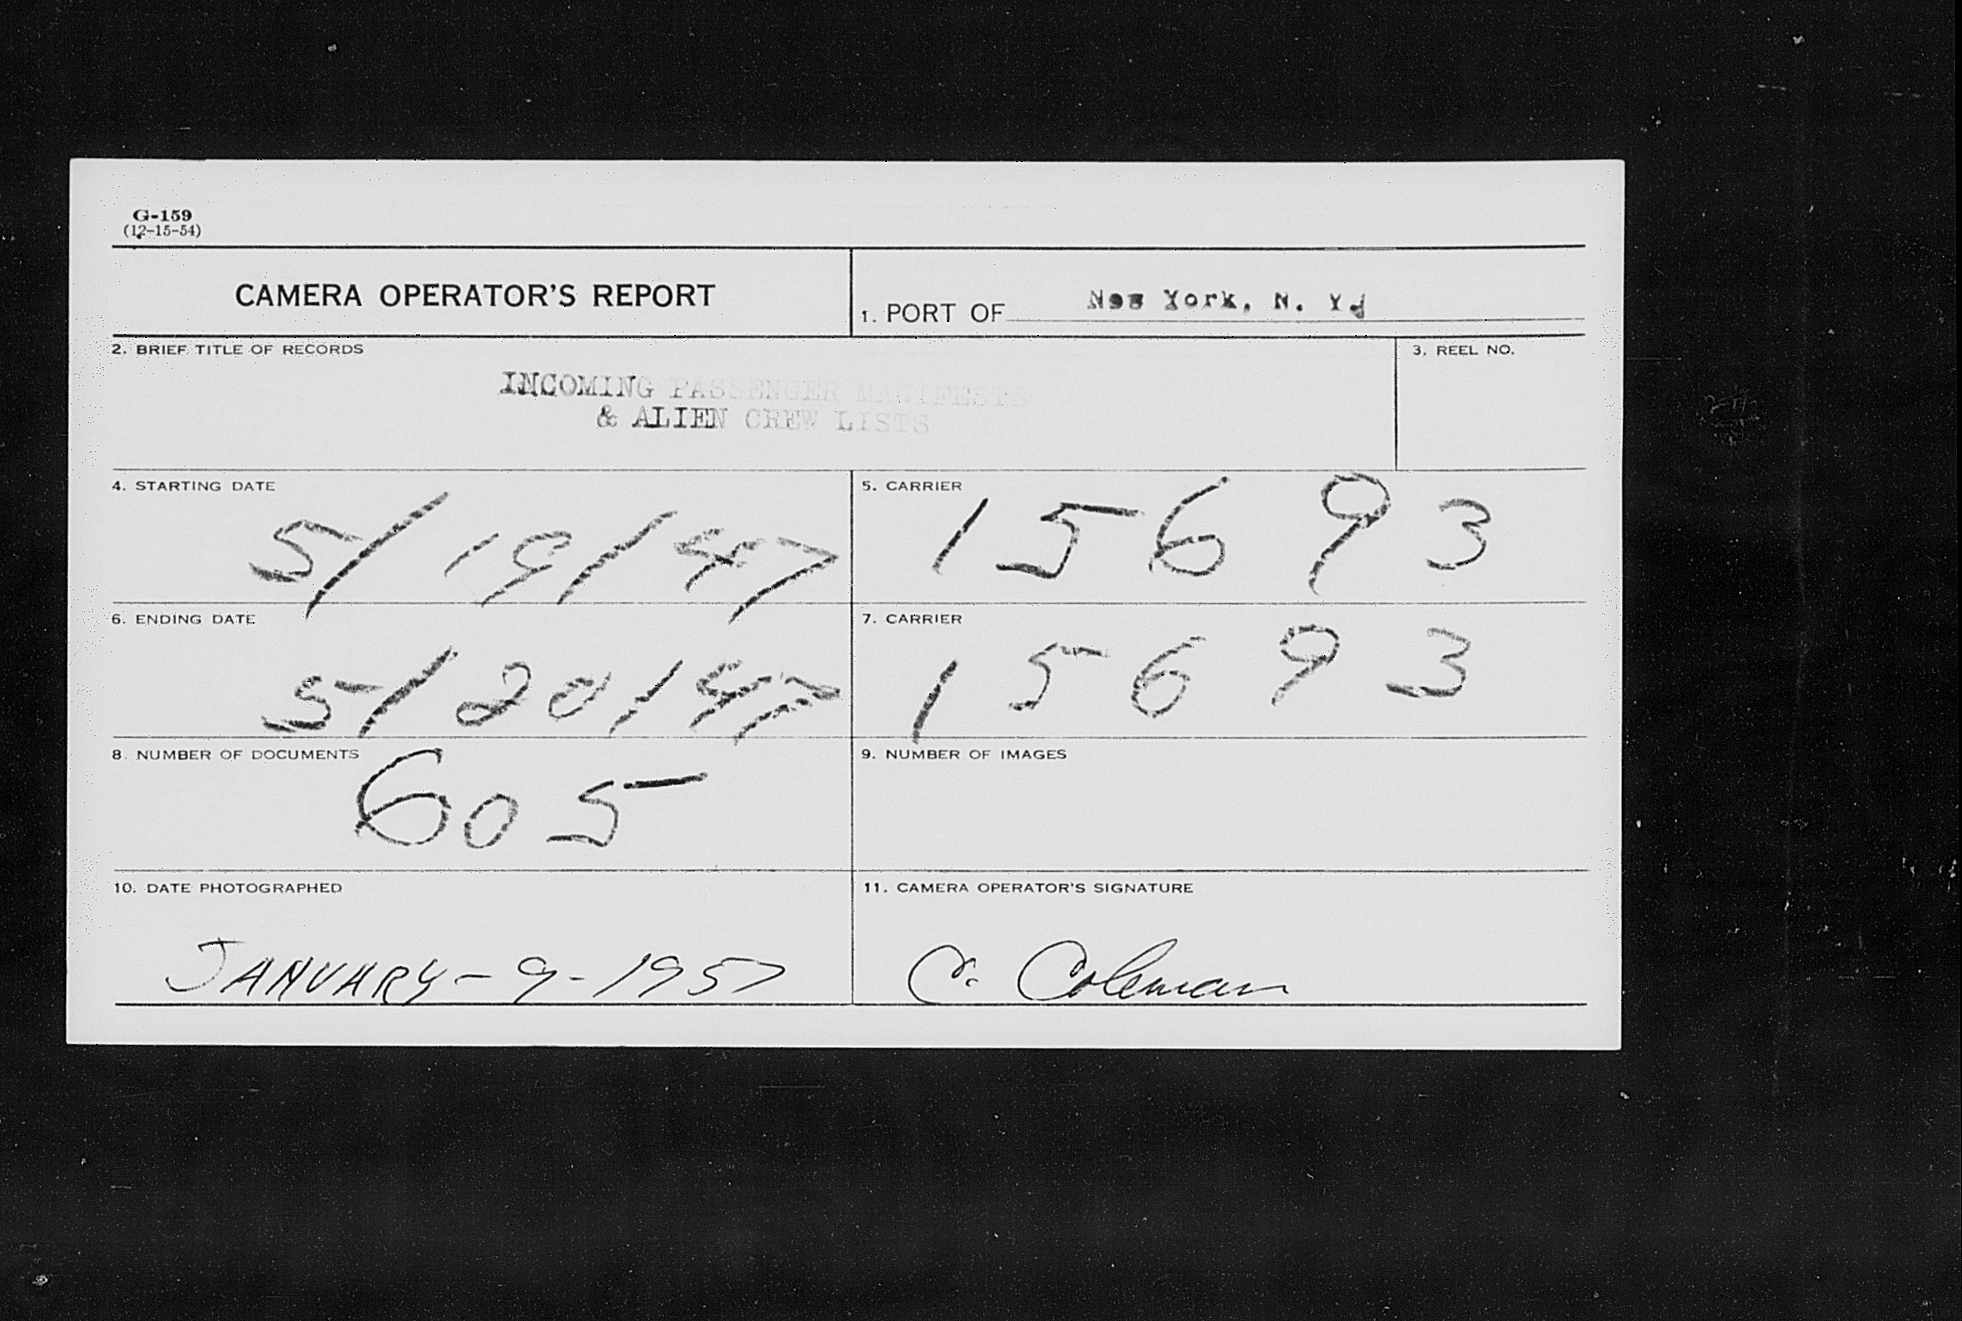 G-159
(12-15-54)
CAMERA OPERATOR'S REPORT
1. PORT OF New York, N. Y.
2. BRIEF TITLE OF RECORDS
INCOMING PASSENGER MANIFESTS
& ALIEN CREW LISTS
3. REEL NO.
4. STARTING DATE
5/19/47
5. CARRIER
15693
6. ENDING DATE
5/20/47
7. CARRIER
15693
8. NUMBER OF DOCUMENTS
605
9. NUMBER OF IMAGES
10. DATE PHOTOGRAPHED
JANUARY-9-1957
11. CAMERA OPERATOR'S SIGNATURE
C. Coleman